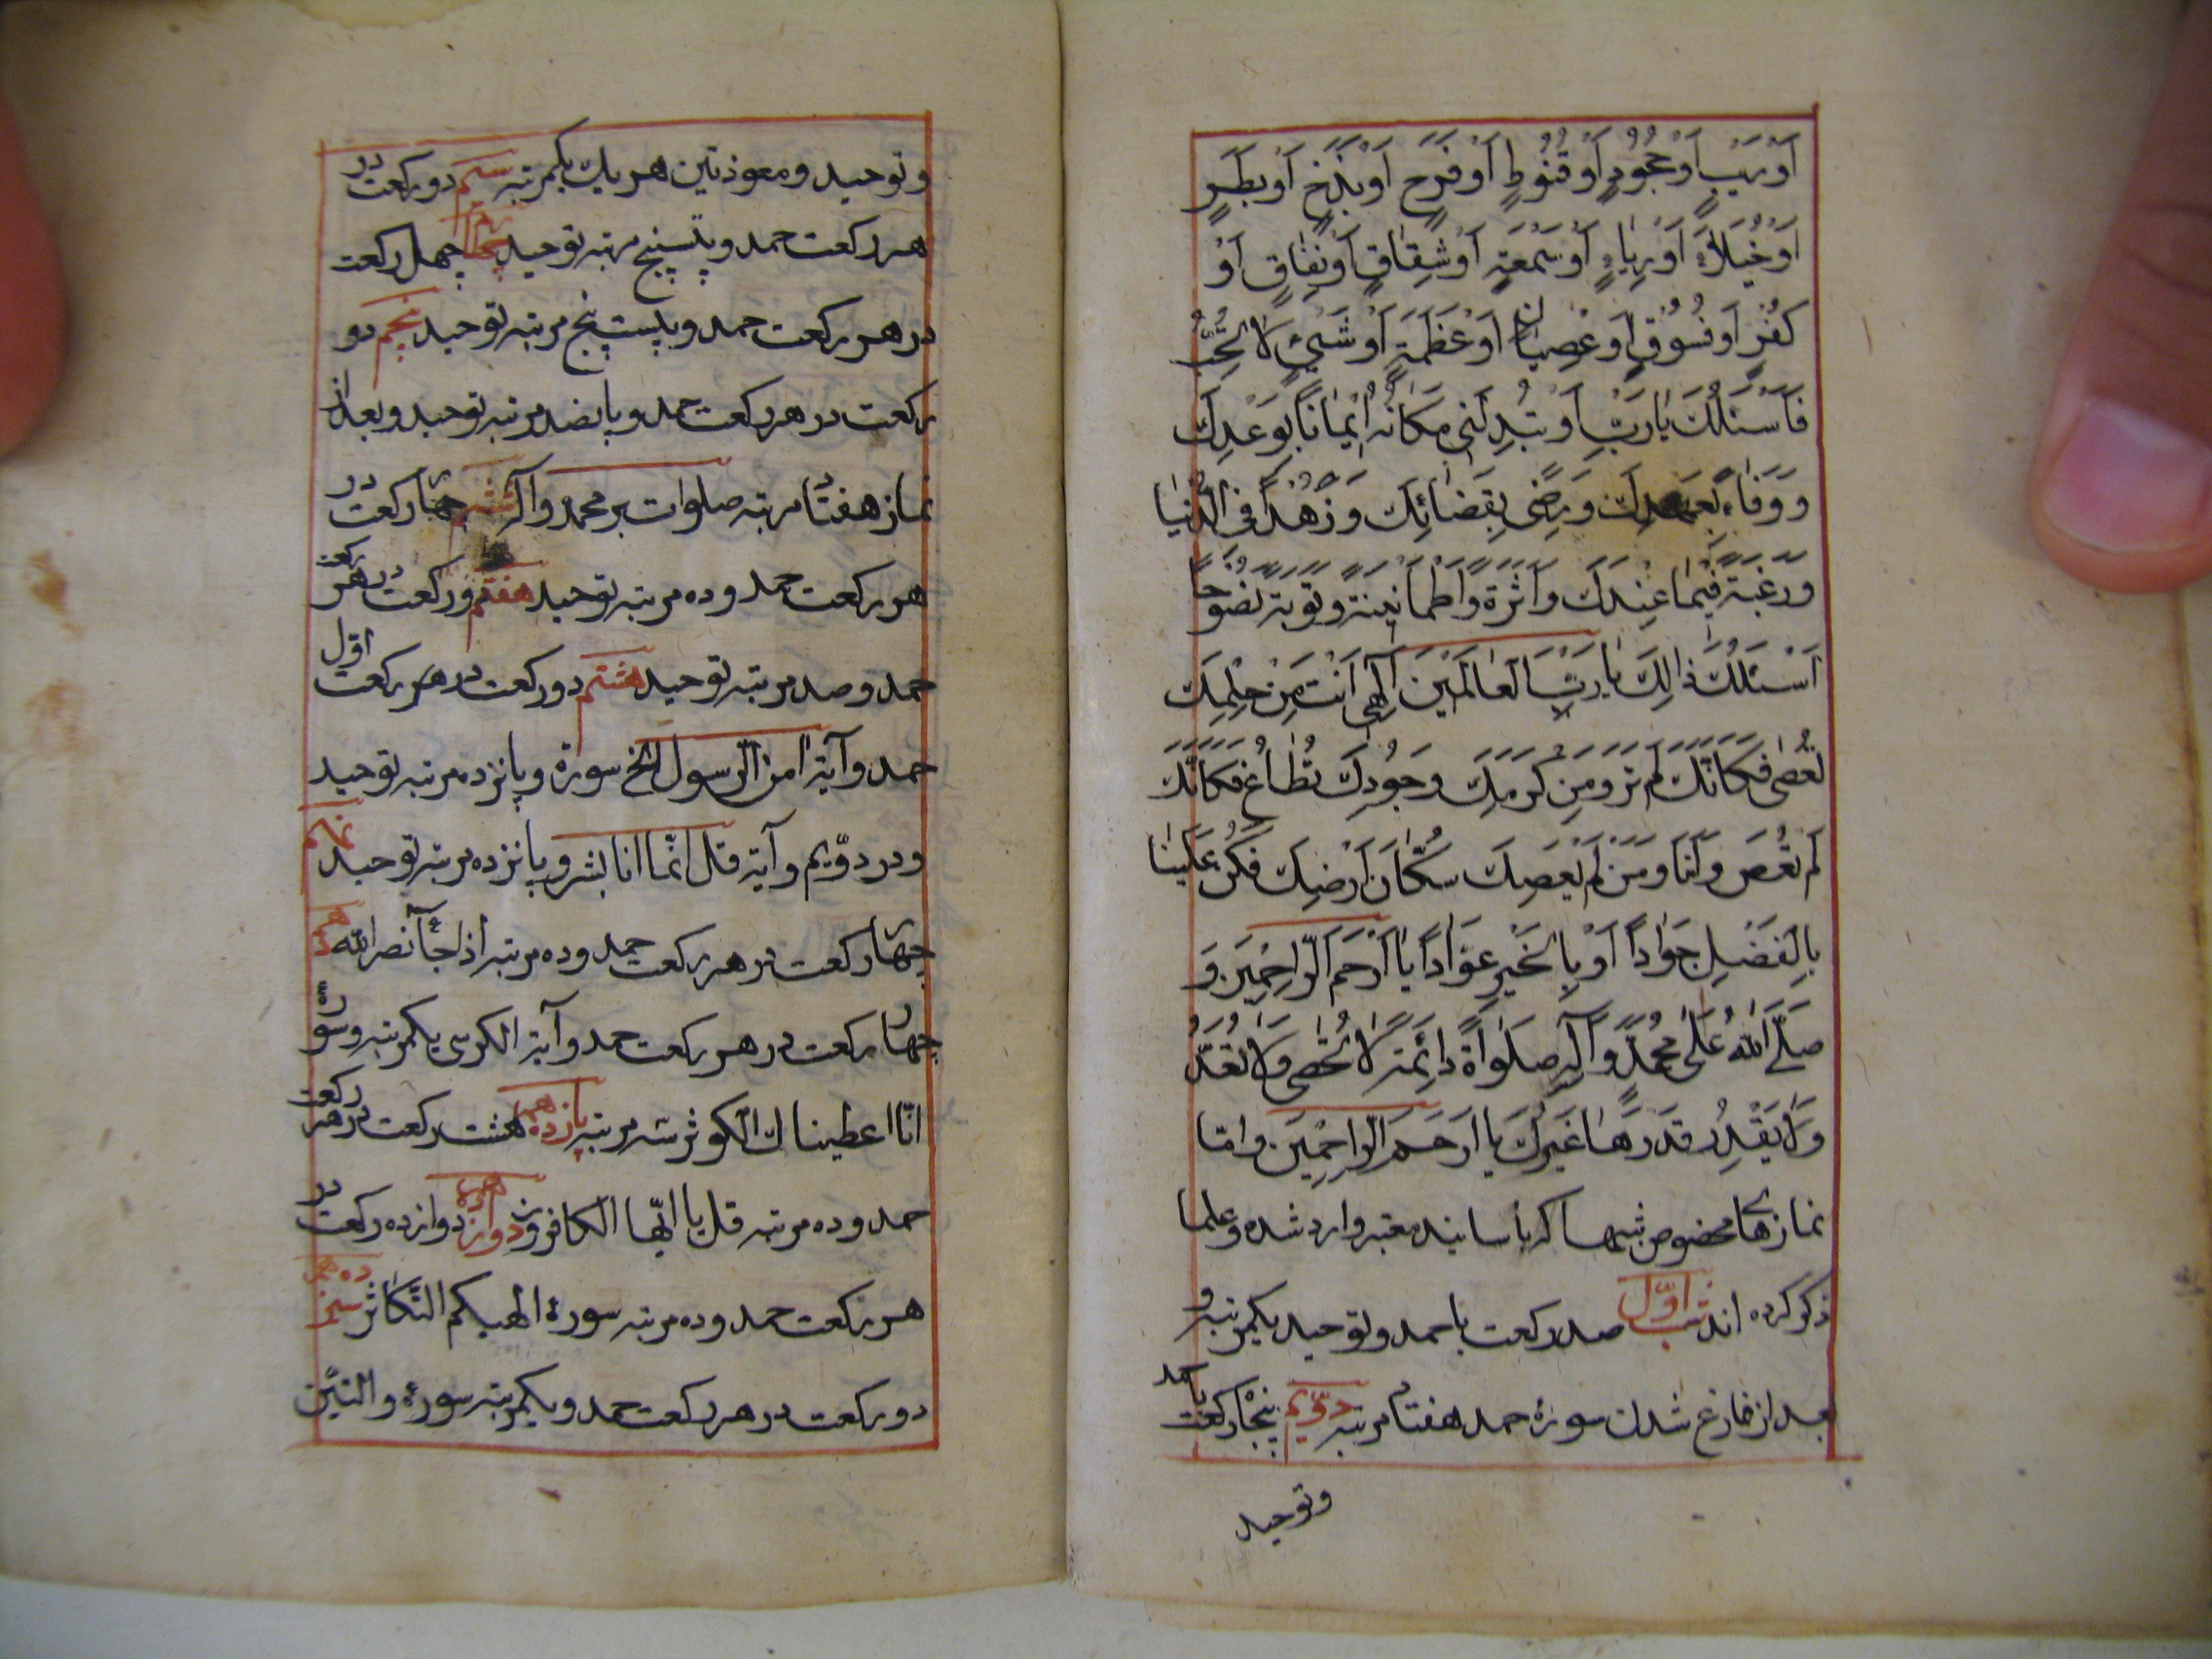 اَوْ رَيْبٍ اَوْ جُحُوُدٍ اَوْ قُنُوُطٍ اَوْ فَرَحٍ اَوْ بَذَخٍ اَوْ بَطَرٍ
اَوْ خُيَلاَءَ اَوْ رِيَاءٍ اَوْ سُمْعَةٍ اَوْ شِقَاقٍ اَوْ نِفَاقٍ اَوْ
كُفْرٍ اَوْ فُسُوُقٍ اَوْ عِصْيَانٍ اَوْ عَظَمَةٍ اَوْ شَيْءٍ لاَ تُحِبُّ
فَاَسْئَلُكَ يَا رَبِّ اَوْ تُبْدِلَنِى مَكَانَهُ اِيْمَانًا بِوَعْدِكَ
وَ وَفَاءً بِعَهْدِكَ وَ رِضًى بِقَضَائِكَ وَ زُهْدًا فِى الدُّنْيَا
وَ رَغْبَةً فِيْمَا عِنْدَكَ وَ اَثَرَةً وَ اطْمَأنِيْنَةً وَ تَوْبَةً نَصُوحًا
اَسْئَلُكَ ذَالِكَ يَا رَبَّ الْعَالَمِيْنَ اِلَهِى اَنْتَ مِنْ حِلْمِكَ
تُعْصَى فَكَاَنَّكَ لَمْ تَرَ وَ مِنْ كَرَمِكَ وَ جُوُدِكَ تُطَاعُ فَكَاَنَّكَ
لَمْ تُعْصَ وَ اَنَا وَ مَنْ لَمْ يَعْصِكَ سُكَّانُ اَرْضِكَ فَكُنْ عَلَيْنَا
بِالْفَضْلِ جَوَادًا اَوْ بِالْخَيْرِ عَوَّادًا يَا اَرْحَمَ الرَّاحِمِيْنَ وَ
صَلَّى اللهُ عَلَى مُحَمَّدٍ وَ آلِهِ صَلَوَاةً دَائِمَةً لاَ تُحْصَى وَ لاَ تُعَدُّ
وَ لاَ يَقْدِرُ قَدْرَهَا غَيْرُكَ يَا اَرْحَمَ الرَّاحِمِيْنَ و امّا
نمازهای مخصوص شبها که باسانید معتبر وارد شده و علما
ذکر کرده اند شب اوّل صد رکعت با حمد و توحید یکمرتبه و
بعد از فارغ شدن سورهٔ حمد هفتاد مرتبه دوّیم پنجاه رکعت با حمد
و توحید
و توحید و معوذتین هر یك یکمرتبه سیم دو رکعت در
هر رکعت حمد و بیست پنج مرتبه توحید چهارم چهل رکعت
در هر رکعت حمد و بیست پنج مرتبه توحید پنجم دو
رکعت در هر رکعت حمد و پانصد مرتبه توحید و بعد از
نماز هفتاد مرتبه صلوات بر محمد و آله ششم چهار رکعت در
هر رکعت حمد و ده مرتبه توحید هفتم دو رکعت در هر رکعت
حمد و صد مرتبه توحید هشتم دو رکعت در هر رکعت اوّل
حمد و آیة امن الرّسول الخ سورة و پانزده مرتبه توحید
و در دوّیم و آیة قل انّما انا بشر و پانزده مرتبه توحید نهم
چهار رکعت در هر رکعت حمد و ده مرتبه اذا جآء نصر الله دهم
چهار رکعت در هر رکعت حمد و آیة الکرسی یکمرتبه و سورهٔ
انّا اعطیناك الکوثر سه مرتبه یازدهم هشت رکعت در هر رکعت
حمد و ده مرتبه قل یا ایّها الکافرون دوازدهم دوازده رکعت در
هر رکعت حمد و ده مرتبه سورهٔ الهیکم التّکاثر سیزدهم
دو رکعت در هر رکعت حمد و یکمرتبه سورهٔ والتین